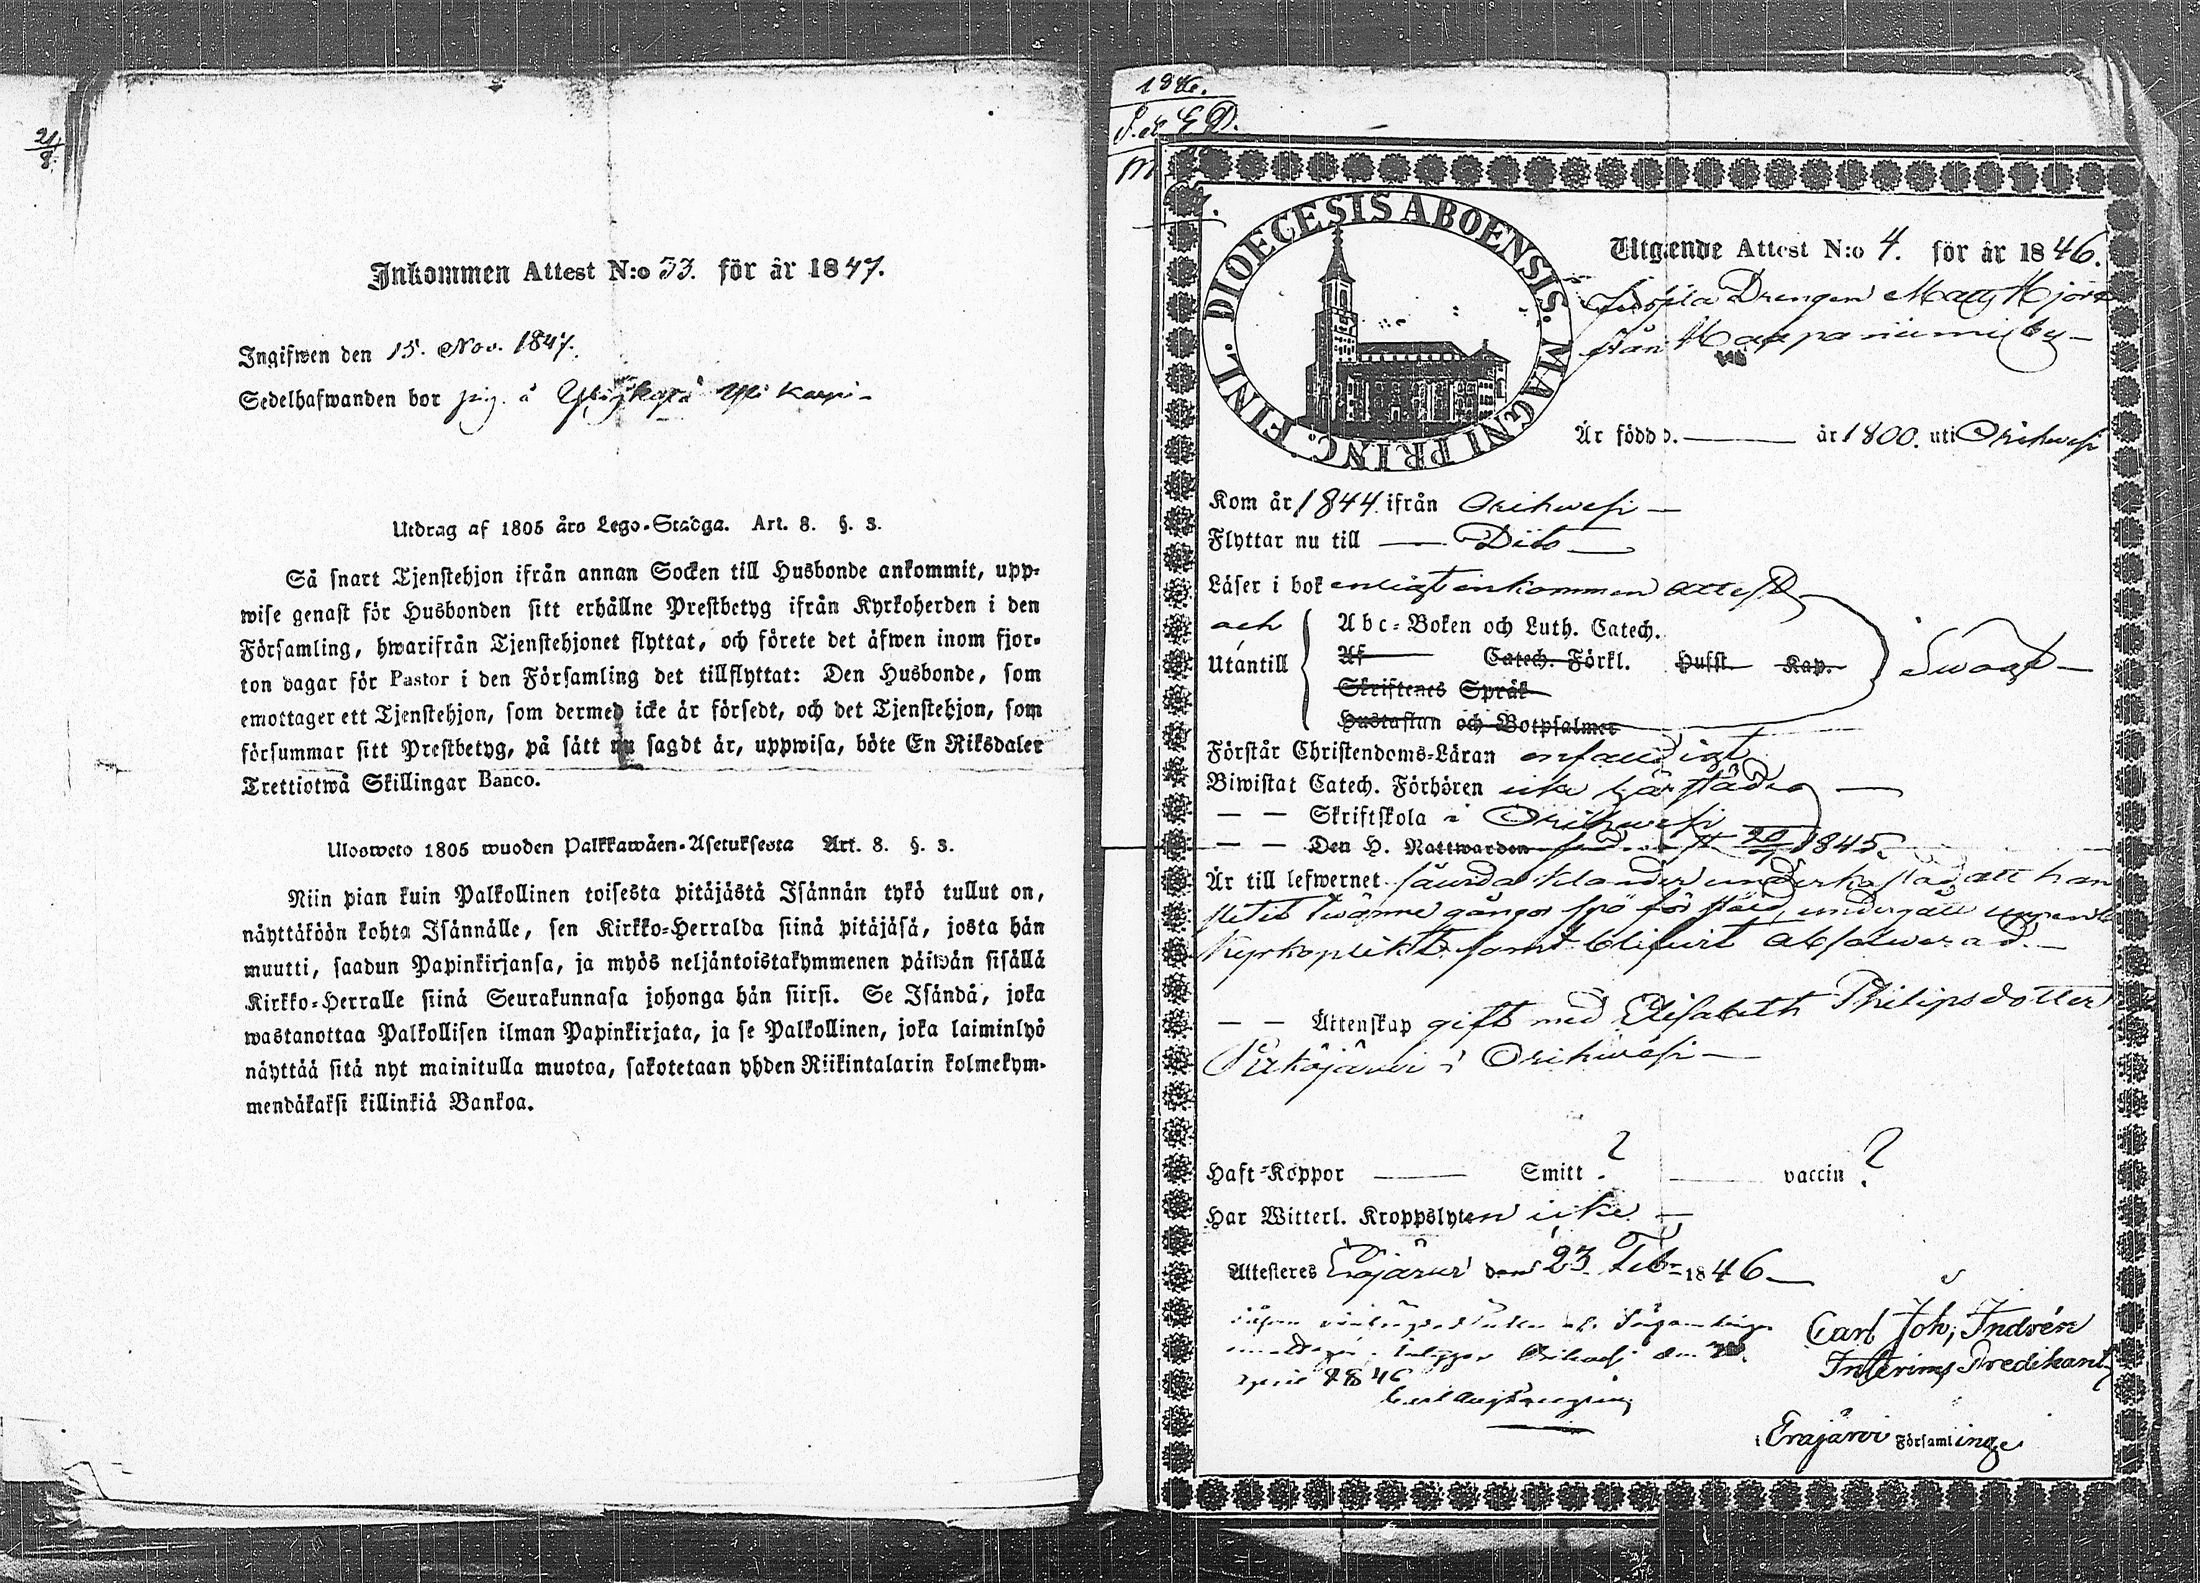 21/8.
Inkommen Attest N:o 33. för år 1847.
Ingifwen den 15. Nov. 1847.
Sedelhafwanden bor pig. å
Utdrag af 1805 års Lego-Stadga. Art. 8. §. 3.
Så snart Tjenstehjon ifrån annan Socken till Husbonde ankommit, upp-
wise genast för Husbonden sitt erhållne Prestbetyg ifrån Kyrkoherden i den
Församling, hwarifrån Tjenstehjonet flyttat, och förete det äfwen inom fjor-
ton dagar för Pastor i den Församling det tillflyttat: Den Husbonde, som
emottager ett Tjenstehjon, som dermed icke är försedt, och det Tjenstehjon, som
försummar sitt Prestbetyg, på sätt nu sagdt är, uppwisa, böte En Riksdaler
Trettiotwå Skillingar Banco.
Ulosweto 1805 wuoden Palkkawäen-Asetuksesta Art. 8. §. 3.
Niin pian kuin Palkollinen toisesta pitäjästä Isännän tykö tullut on,
näyttäköön kohta Isännälle, sen Kirkko-Herralda siinä pitäjäsä, josta hän
muutti, saadun Papinkirjansa, ja myös neljäntoistakymmenen päiwän sisällä
Kirkko-Herralle siinä Seurakunnasa johonga hän siirsi. Se Isändä, joka
wastanottaa Palkollisen ilman Papinkirjata, ja se Palkollinen, joka laiminlyö
näyttää sitä nyt mainitulla muotoa, sakotetaan yhden Riikintalarin kolmekym-
mendäkaksi killinkiä Bankoa.
1846.
DIOECESIS ABOENSIS. MAGNI PRINC. FINL.
Utgående Attest N:o 4. för år 1846.
Drengen Matts
från by
Är född d. — år 1800. uti Orihwesi
Kom år 1844. ifrån Orihwesi
Flyttar nu till — Dito —
Läser i bok enligt inkommen attest
och
Utantill
Abc-Boken och Luth. Catech.
Af Catech. Förkl. Husst. Kap.
Skriftenes Språk
Hustaflan och Botpsalmer
Swagt
Förstår Christendoms-Läran enfaldigt
Biwistat Catech. Förhören icke härstädes
— — Skriftskola i Orihwesi
— — Den H. Nattwarden 1845.
Är till lefwernet att han
twänne gångor spö för undergått uppenb.
Kyrkoplikt samt blifwit absolverad.
— — Ättenskap gift med Elisabeth Philipsdotter
i Orihwesi
Haft-Koppor — Smitt ? — vaccin ?
Har Witterl. Kroppslyten icke —
Attesteres Eräjärvi den 23 Feb 1846
Carl Joh. Indrén
Interims Predikant
Orihwesi den
April 1846
i Eräjärvi Församlinge